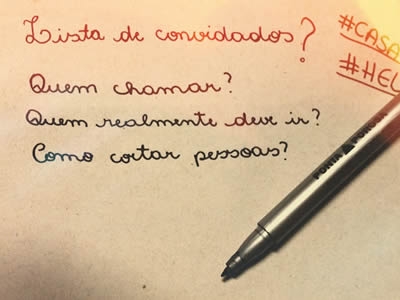 Lista de convidados?
#CASA
#HEL
Quem chamar?
Quem realmente deve ir?
Como cortar pessoas?
PONTA POROSA